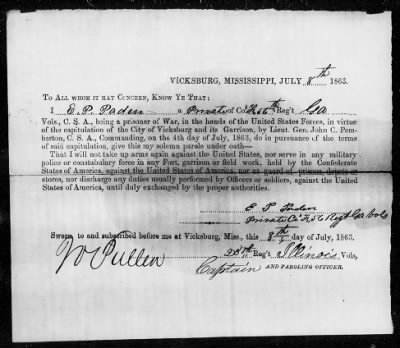 VICKSBURG, MISSISSIPPI, JULY 8th 1863.
TO ALL WHOM IT MAY CONCERN, KNOW YE THAT:
I E. P. Paden a Private of Co F. 56th Reg't Ga
Vols., C. S. A., being a prisoner of War, in the hands of the United States Forces, in virtue
of the capitulation of the City of Vicksburg and its Garrison, by Lieut. Gen. John C. Pem-
berton, C. S. A., Commanding, on the 4th day of July, 1863, do in pursuance of the terms
of said capitulation, give this my solemn parole under oath—
That I will not take up arms again against the United States, nor serve in any military
police or constabulary force in any Fort, garrison or field work, held by the Confederate
States of America, against the United States of America, nor as guard of prisons, depots or
stores, nor discharge any duties usually performed by Officers or soldiers, against the United
States of America, until duly exchanged by the proper authorities.
E P Paden
Private Co F. 56 Regt Ga Vols
Sworn to and subscribed before me at Vicksburg, Miss., this 8th day of July, 1863.
Pullen Reg't Illinois Vols,
Captain AND PAROLING OFFICER.